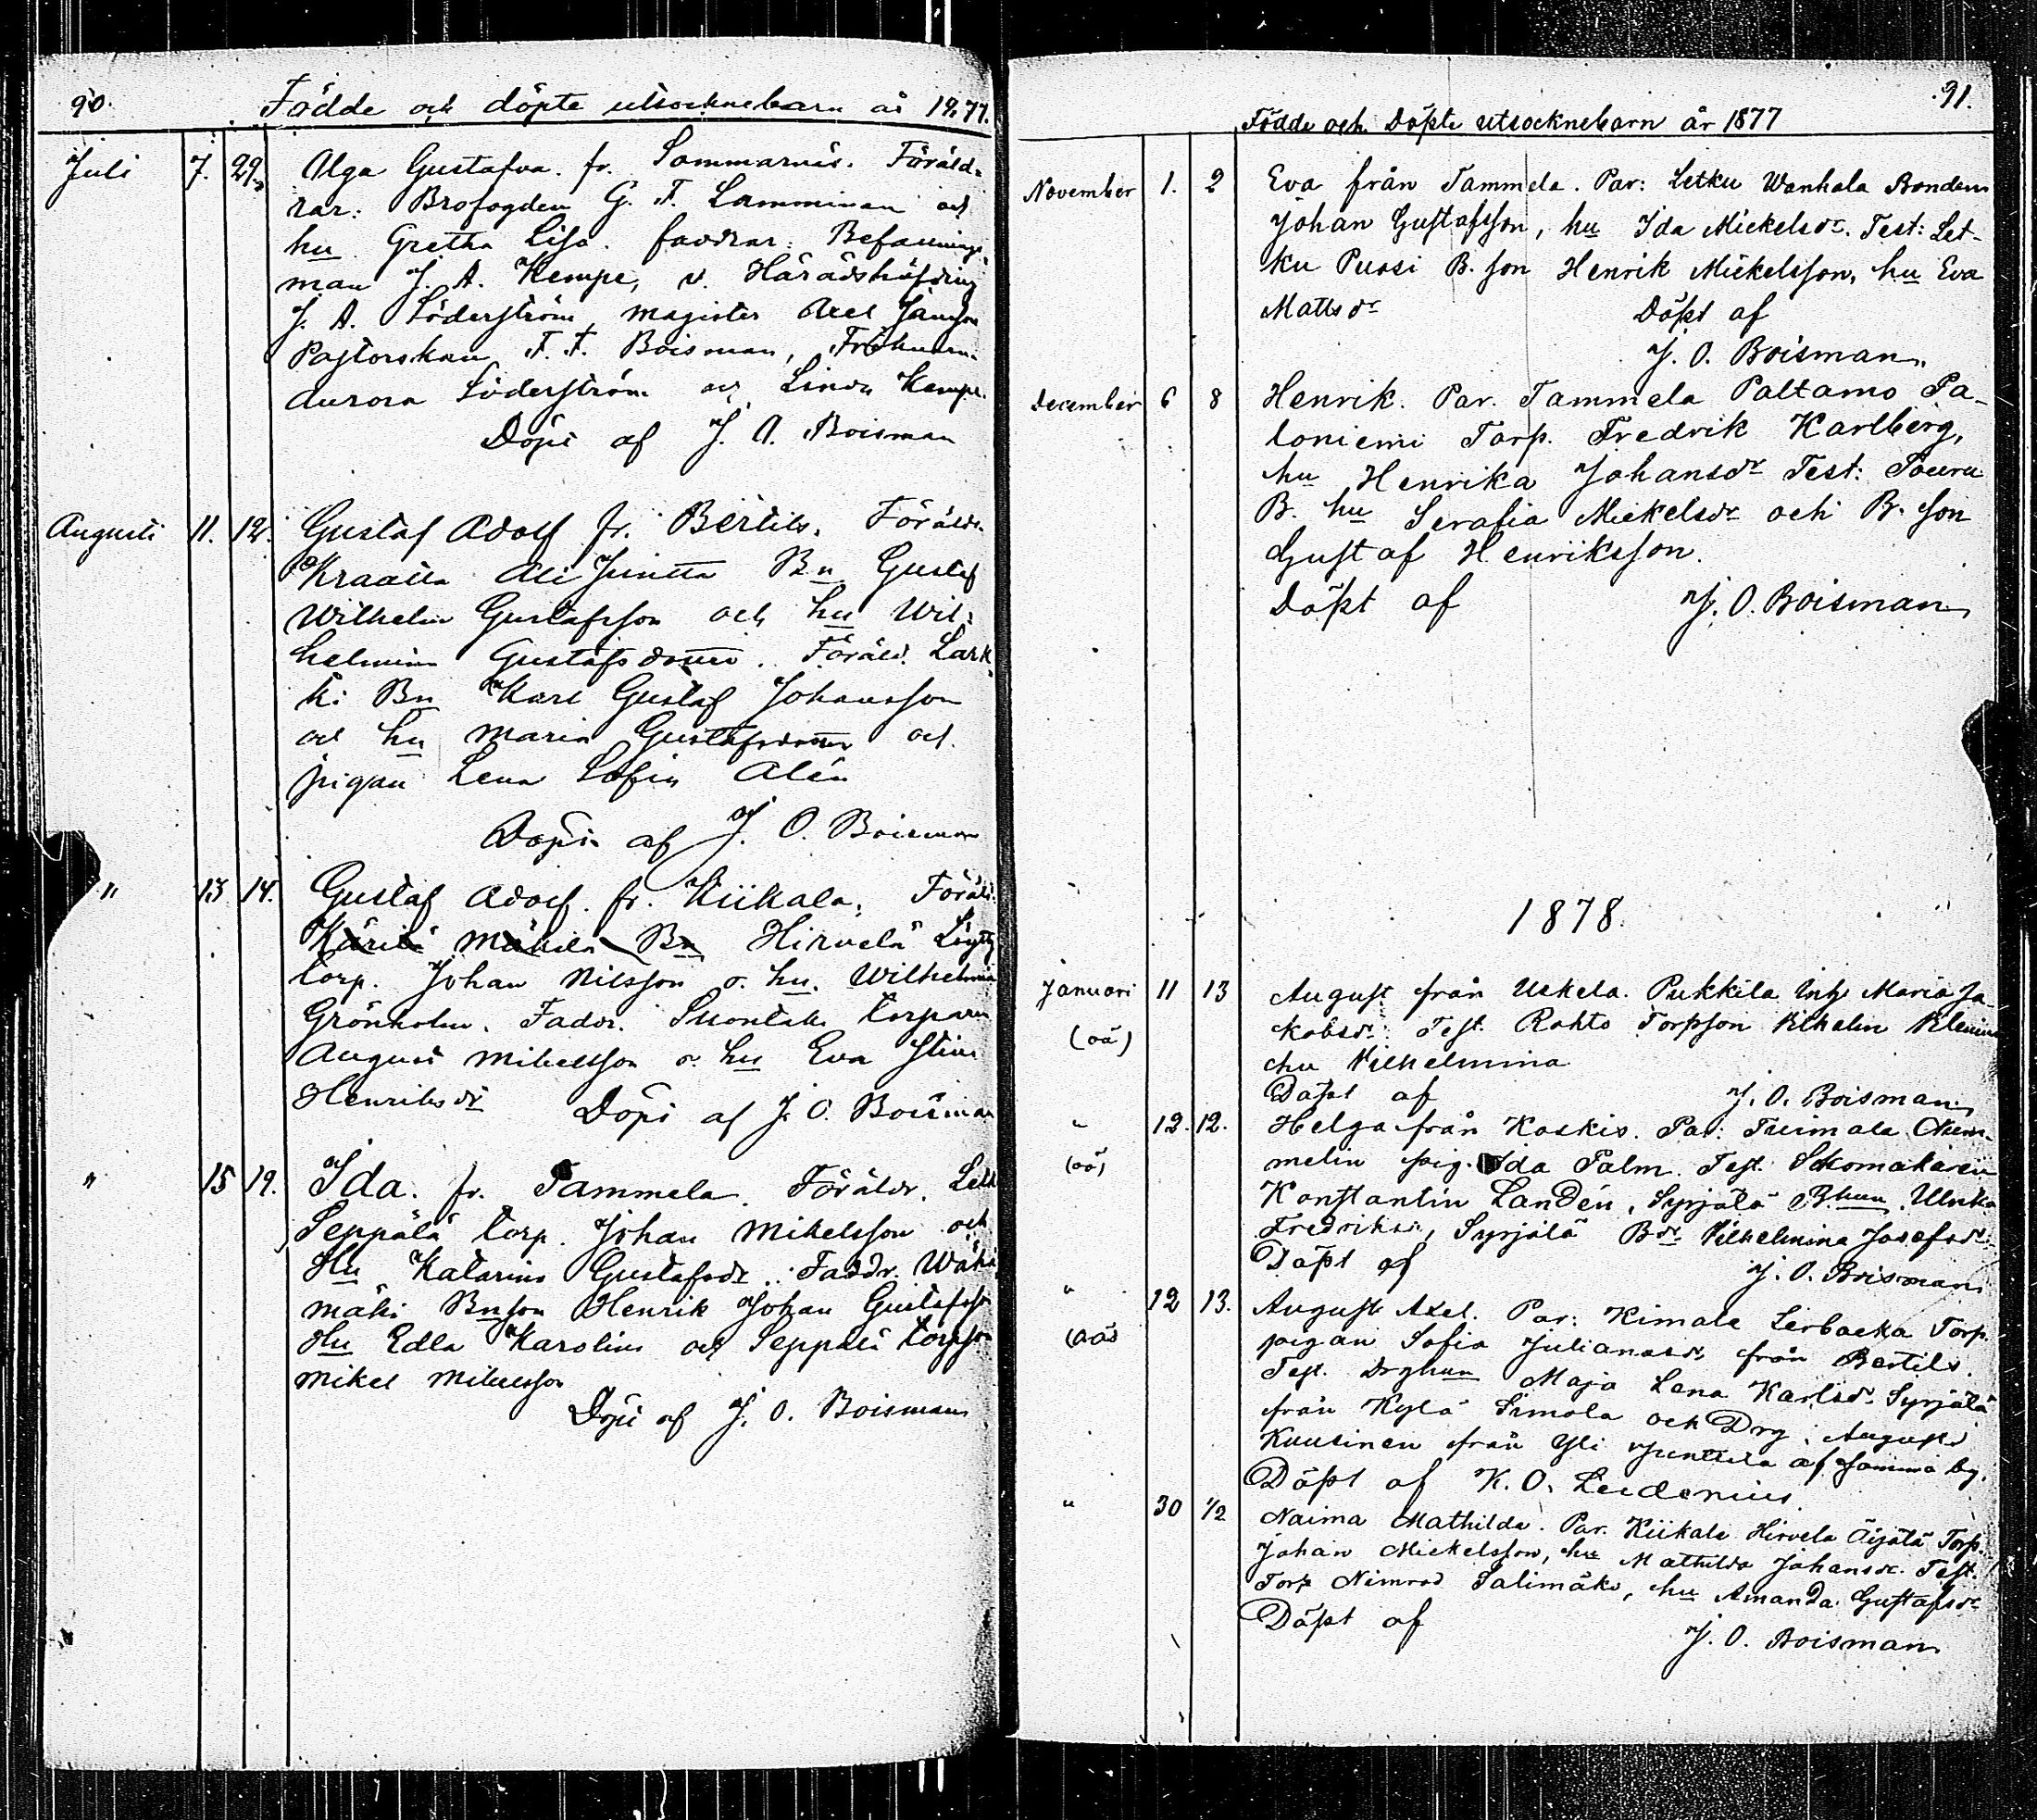 90.
Födde och döpte utsocknebarn år 1877.
Juli 7. 29. Olga Gustafva. fr. Sommarnäs. Föräld-
rar: Brofogden G. F. Lamminen och
hu Gretha Lisa. faddrar: Befallnings-
man J. A. Kempe, v. Häradshöfding
J. A. Söderström, magister Axel
Pastorskan F. F. Boisman, Fröknarna
Aurora Söderström och Linda Kempe.
Döpt af J. O. Boisman
Augusti 11. 12. Gustaf Adolf fr. Bertils. Föräldr.
Ali Bn Gustaf
Wilhelm Gustafsson och hu Wil-
helmina Gustafsdotter. Föräld. Lark-
ki Bn Karl Gustaf Johansson
och hu Maria Gustafsdotter och
pigan Lena Sofia Alén
Döpt af J. O. Boisman
" 13 14. Gustaf Adolf. fr. Kiikala, Föräld.
Bn Hirvelä
torp. Johan Nilsson o. hu. Wilhelmina
Grönholm. Faddr. Suontaka torparen
August Mikelsson o. hu Eva Stina
Henriksdr Döpt af J. O. Boisman
" 15 19. Ida. fr. Tammela. Föräldr. Letku
Seppälä torp. Johan Mikelsson och
Hu Katarina Gustafsdr. Faddr. Wähä
mäki Bnson Henrik Johan Gustafsson
Hu Edla Karolina och Seppälä torpson
Mikel Mikelsson
Döpt af J. O. Boisman
91.
Födde och Döpte utsocknebarn år 1877
November 1. 2 Eva från Tammela. Par: Letku Wanhala Bonden
Johan Gustafsson, hu Ida Mickelsdr. Test: Let-
ku Puosi B. son Henrik Mickelsson, hu Eva
Mattsdr Döpt af
J. O. Boisman
December 6 8 Henrik. Par. Tammela Paltamo Pa-
loniemi Torp. Fredrik Karlberg,
hu Henrika Johansdr Test: Touru
B. hu Serafia Mickelsdr och B. son
Gustaf Henriksson.
Döpt af J. O. Boisman
1878.
Januari 11 13 August från Uskela. Pukkila Inh. Maria Ja-
(oä) kobsdr: Test. Rahto Torpson Vilhelm
hu Vilhelmina
Döpt af J. O. Boisman
" 12. 12. Helga från Koskis. Par: Tuimala Num-
(oä) melin pig. Ida Palm. Test. Skomakaren
Konstantin Landén, Syrjälä B. hun Ulrika
Fredriksdr, Syrjälä Bdr Vilhelmina Josefsdr.
Döpt af J. O. Boisman
" 12 13. August Axel. Par: Kimala Lerbacka Torp.
(oä) pigan Sofia Julianasdr, från Bertils.
Test. Drghun Maja Lena Karlsdr Syrjälä
från Kylä Simola och Drg. August
Kuusinen från Yli Junttila af samma by.
Döpt af K. O. Leidenius.
" 30 1/2 Naima Mathilda. Par. Kiikala Hirvelä Äijälä Torp.
Johan Mickelsson, hu Mathilda Johansdr. Test.
Torp Nimrod Salimäki, hu Amanda Gustafsdr
Döpt af
J. O. Boisman